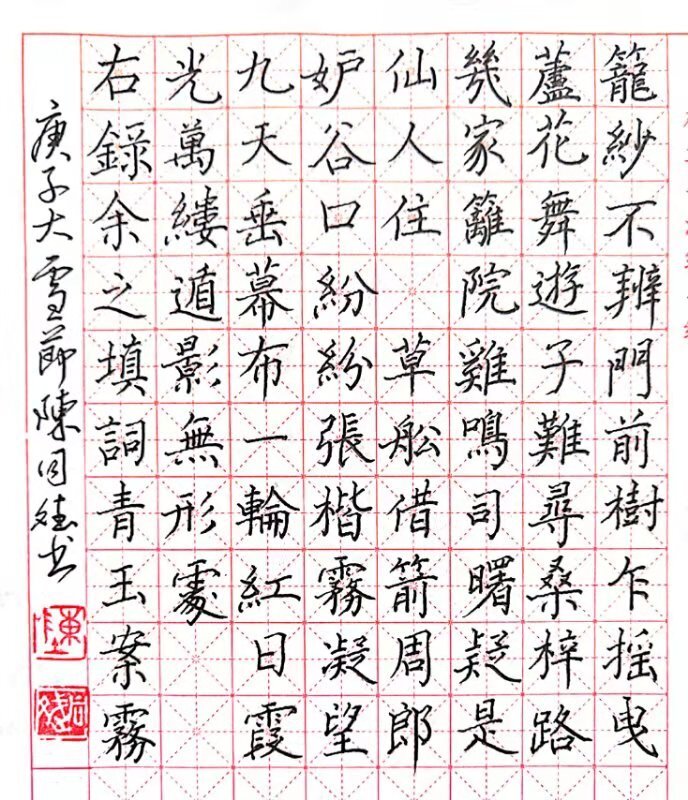 籠紗不辨門前樹乍搖曳
蘆花舞遊子難尋桑梓路
幾家籬院雞鳴司曙疑是
仙人住 草船借箭周郎
妒谷口紛紛張楷霧凝望
九天垂幕布一輪紅日霞
光萬縷遁影無形處
右錄余之填詞青玉案霧
庚子大雪節陳同